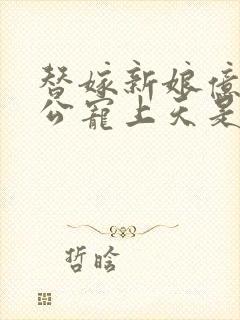 替嫁新娘億
公寵上天是
哲晗